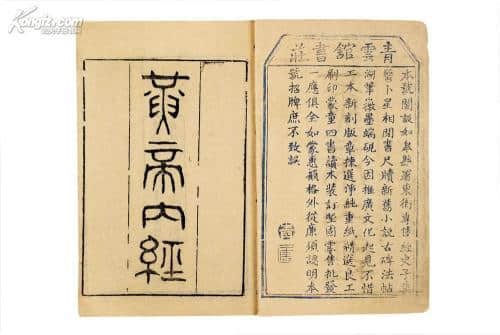 青雲舘書莊
本號開設如皐縣署東街專售經史子集
醫卜星相閒書尺牘新舊小說古碑法帖
湖筆徽墨端硯今因推廣文化起見不惜
工本新刻版章揀選淨純重紙精選良工
刷印蒙童四書讀本裝訂堅固零售批發
一應俱全如蒙惠顧格外從廉須認明本
號招牌庶不致誤
黃帝內經
Kongfz.com